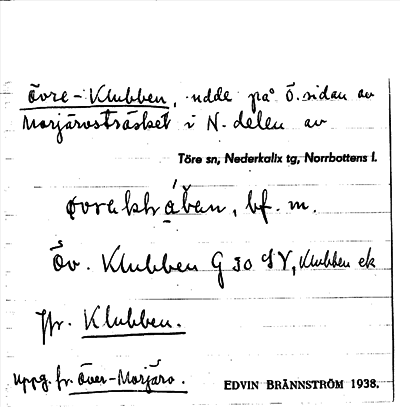 Övre-Klubben, udde på Ö. sidan av
Morjärvsträsket i N. delen av
Töre sn, Nederkalix tg, Norrbottens l.
bf. m.
Öv. Klubben G 30 SV, Klubben ek
Jfr. Klubben.
Uppg. fr. Över-Morjärv.
EDVIN BRÄNNSTRÖM 1938.